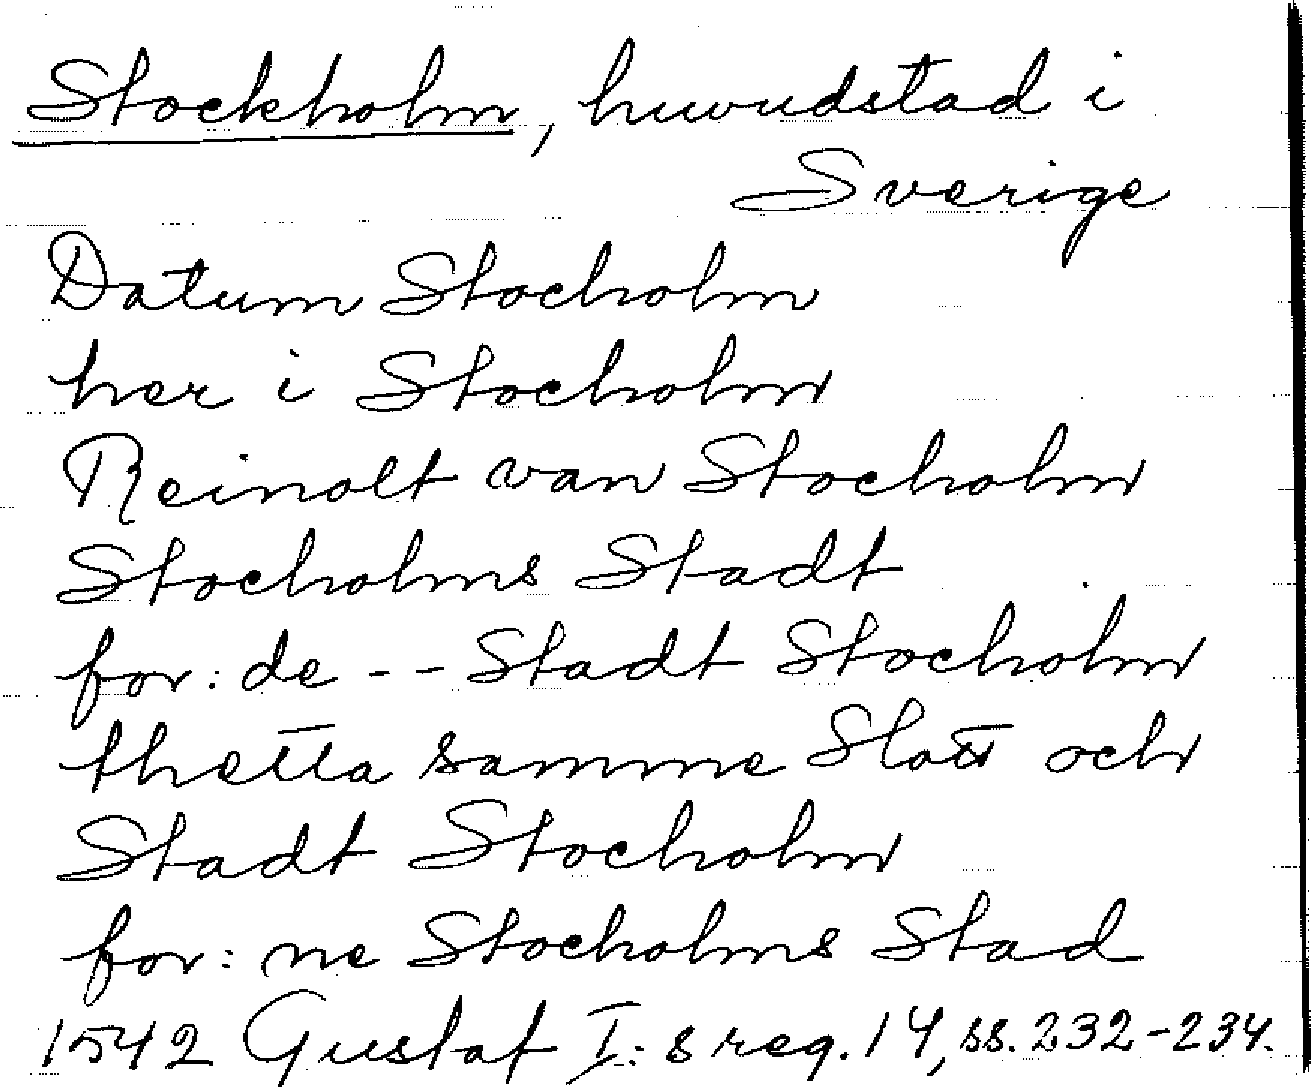 Stockholm, huvudstad i
Sverige
Datum Stocholm
her i Stocholm
Reinolt van Stocholm
Stocholms Stadt
for: de -- Stadt Stocholm
thetta samme Slott och
Stadt Stocholm
for: ne Stocholms Stad
1542 Gustaf I:s reg. 14, ss. 232-234.